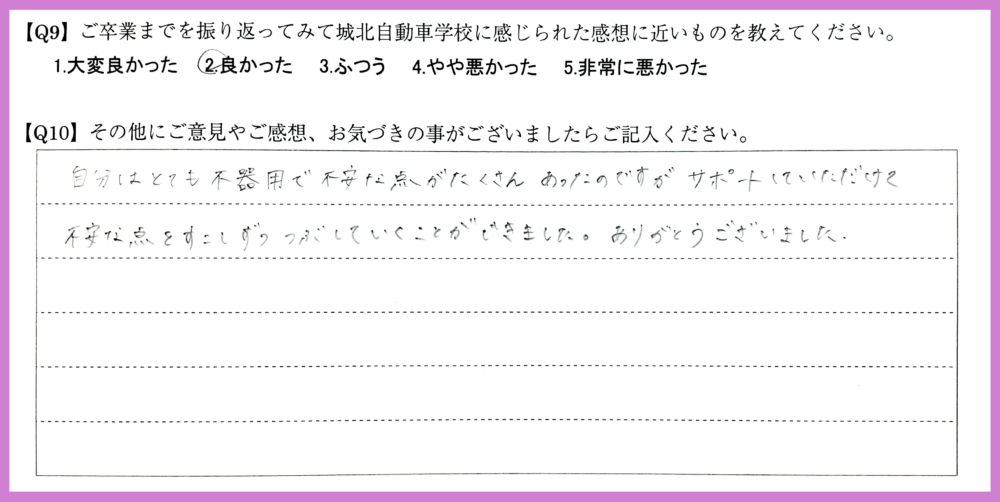 【Q9】ご卒業までを振り返ってみて城北自動車学校に感じられた感想に近いものを教えてください。
1.大変良かった 2.良かった 3.ふつう 4.やや悪かった 5.非常に悪かった
【Q10】その他にご意見やご感想、お気づきの事がございましたらご記入ください。
自分はとても不器用で不安な点がたくさんあったのですがサポートしていただけて
不安な点をすこしずつつぶしていくことができました。ありがとうございました.